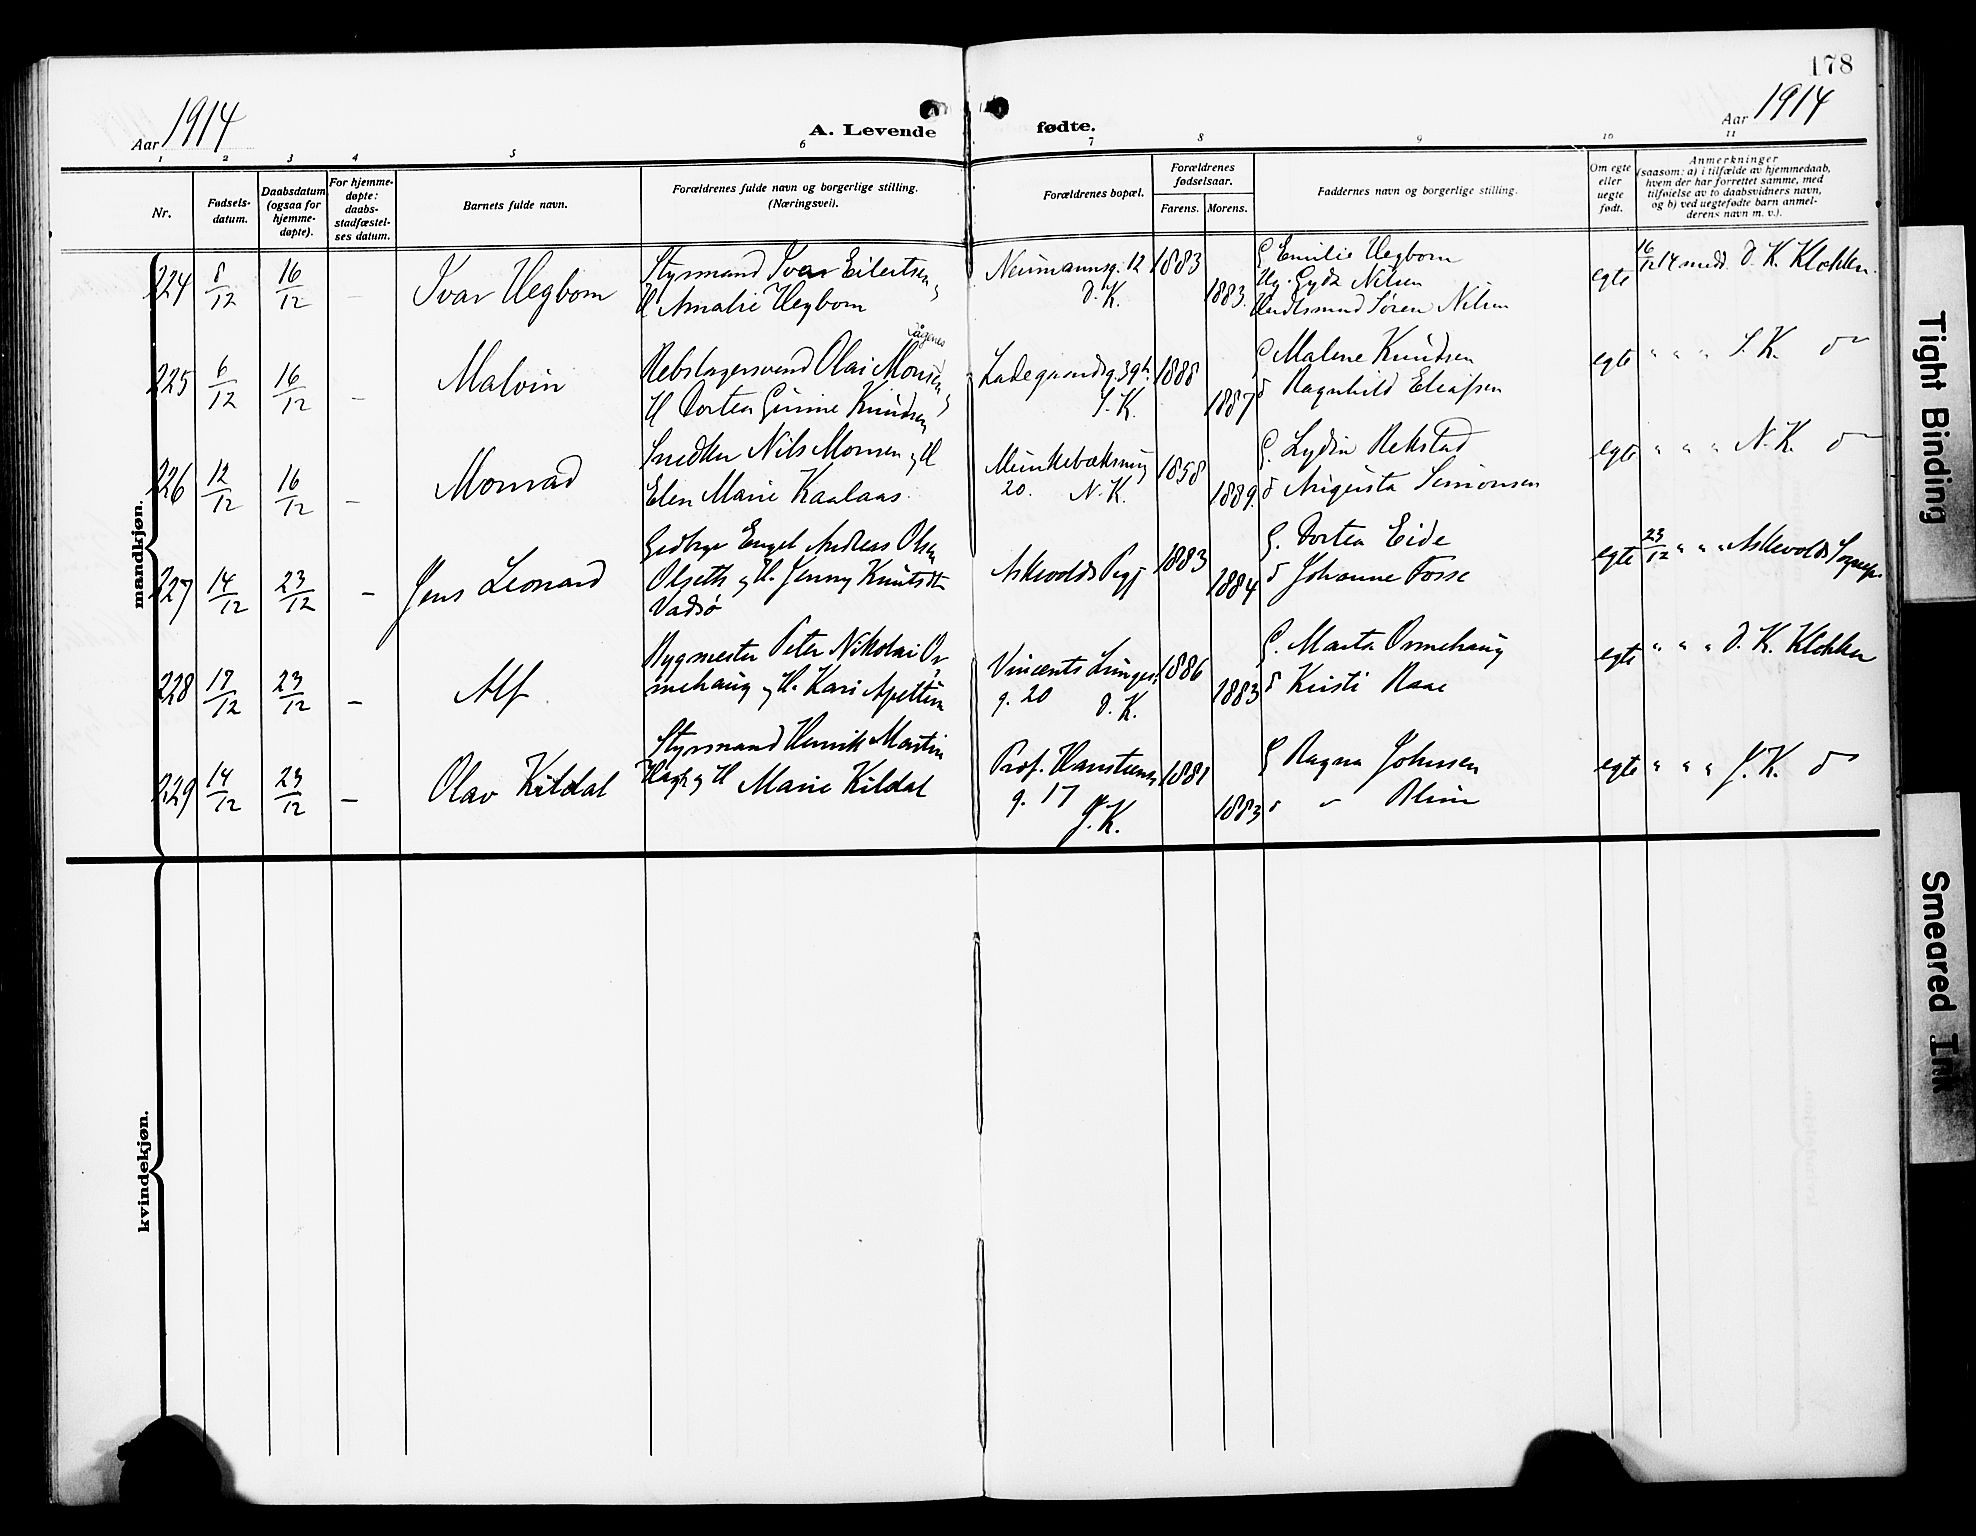 178
Aar 1914
A. Levende fødte.
Aar 1914
1 2 3 4 5 6 7 8 9 10 11
Nr.
Fødsels-
datum.
Daabsdatum
(ogsaa for
hjemme-
døpte).
For hjemme-
døpte:
daabs-
stadfæstel-
ses datum.
Barnets fulde navn.
Forældrenes fulde navn og borgerlige stilling.
(Næringsvei).
Forældrenes bopæl.
Forældrenes
fødselsaar.
Farens. Morens.
Faddernes navn og borgerlige stilling.
Om egte
eller
uegte
født.
Anmerkninger
(saasom: a) i tilfælde av hjemmedaab,
hvem der har forrettet samme, med
tilføielse av to daabsvidners navn,
og b) ved uegtefødte barn anmel-
derens navn m. v.).
mandkjøn.
224 8/12 16/12 – Ivar Hegbom
Styrmand Ivar Eilertsen
H Amalie Hegbom
Neumannsg. 12
D. K.
1883 1883.
G Emilie Hegbom
Gyda Nilsen
Søren Nilsen
egte 16/12 14 medd. D. K. Klokker.
225 6/12 16/12 – Malvin
Rebslagersvend Olai Monsen
H Dortea Gurine Knudsen
Ladegaardsg. 39
S. K.
1888 1887
G Malene Knudsen
Ragnhild Eliassen
egte " " " S. K.
226 12/12 16/12 – Monrad
Snedker Nils Monsen og H
Elen Marie Kaalaas.
Munkebæksmug
20. N. K.
1858 1889.
G. Lydia Rekstad
Augusta Simonsen
egte " " " N. K.
227 14/12 23/12 – Jens Leonard
Engel Andreas Olsen
Olseth og H. Jenny Knutsdtr
Vadsø
Askvolds Pgj
1883 1884
G. Dortea Eide
Johanne Fosse
egte 23/12 " " Askvolds Sognepr.
228 17/12 23/12 – Alf
Bygmester Peter Nikolai Or
mehaug og H. Kari Apeltun
Vincents Lunges.
g. 20 D. K.
1886 1883
G. Marta Ormehaug
Kristi Raae
egte " " " D. K. Klokker
229 14/12 23/12 – Olav Kildal
Styrmand Henrik Martin
og H Marie Kildal
Prof. Hansteens
g. 17
J. K.
1881 1883
G Ragna Johnsen
" Blum
egte " " " J. K.
kvindekjøn.
Tight Binding
Smeared Ink